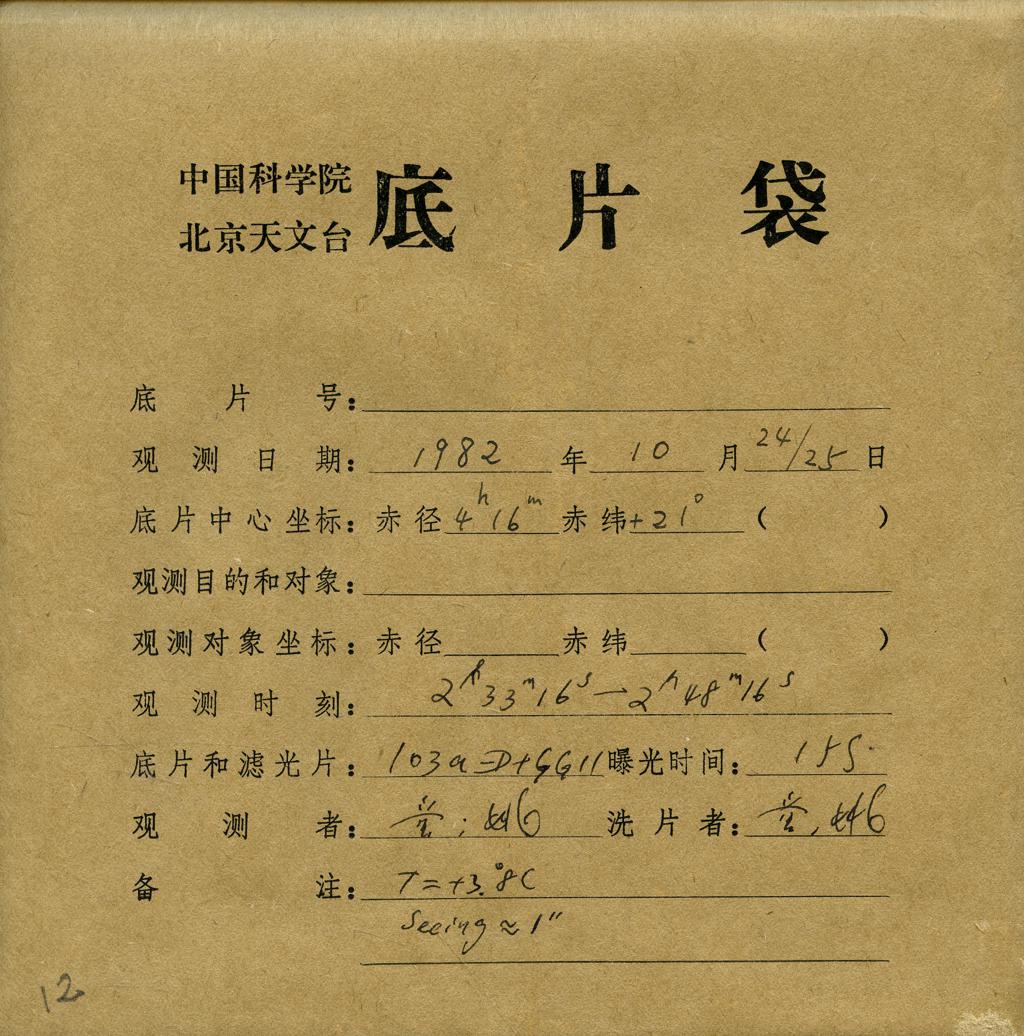 中国科学院
北京天文台
底片袋
底片号：
观测日期： 1982 年 10 月 24/25 日
底片中心坐标：赤径 4h16m 赤纬 +21° （ ）
观测目的和对象：
观测对象坐标：赤径 赤纬 （ ）
观测时刻： 2h33m16s — 2h48m16s
底片和滤光片： 103a-D+GG11 曝光时间：
观测者： 洗片者：
备注： T=+3.°8C
Seeing ≈ 1"
12